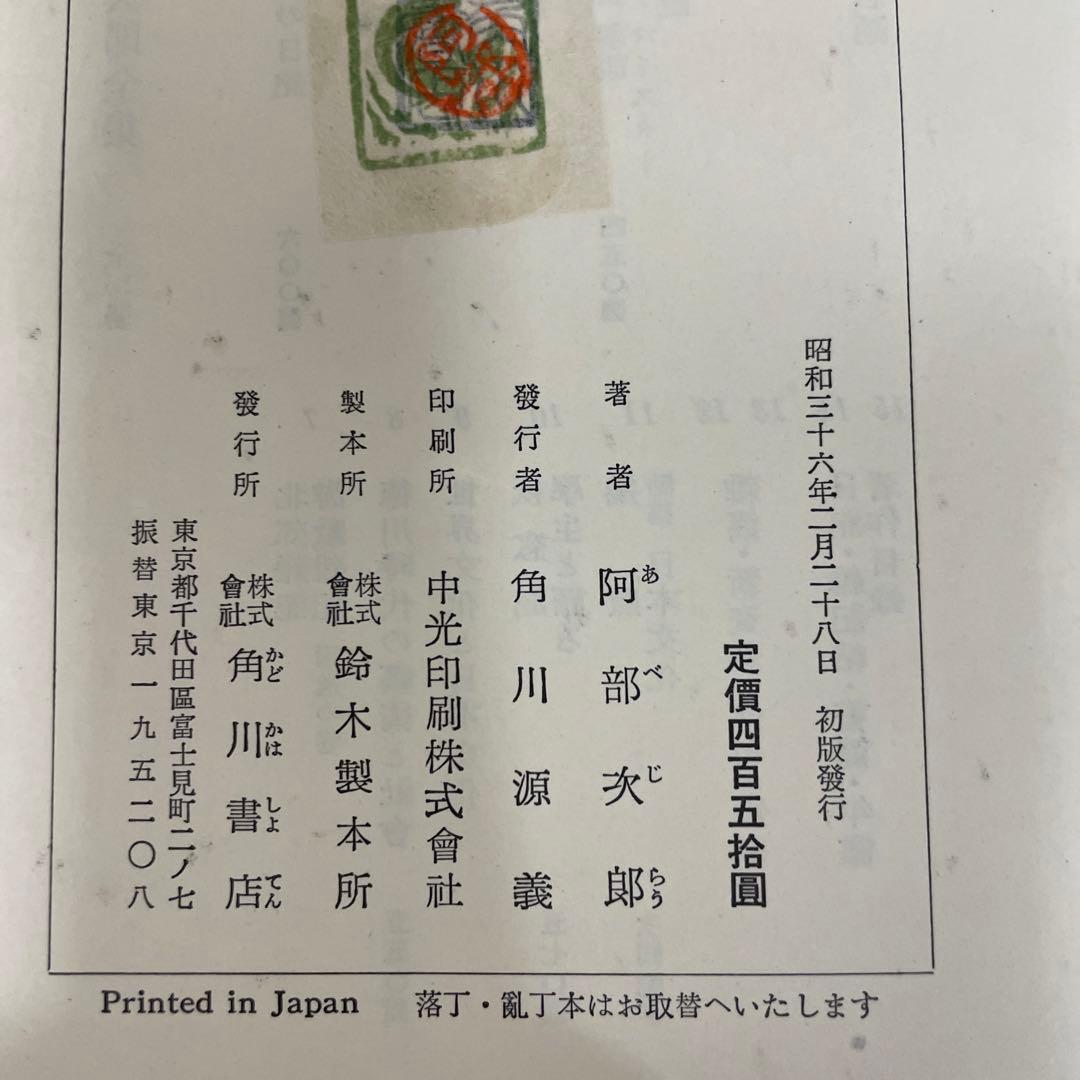 昭和三十六年二月二十八日　初版發行
定價四百五拾圓
著者　阿部次郎
あべじらう
發行者　角川源義
印刷所　中光印刷株式會社
製本所　株式會社鈴木製本所
發行所　株式會社角川書店
かどかはしよてん
東京都千代田區富士見町二ノ七
振替東京一九五二〇八
Printed in Japan　落丁・亂丁本はお取替へいたします